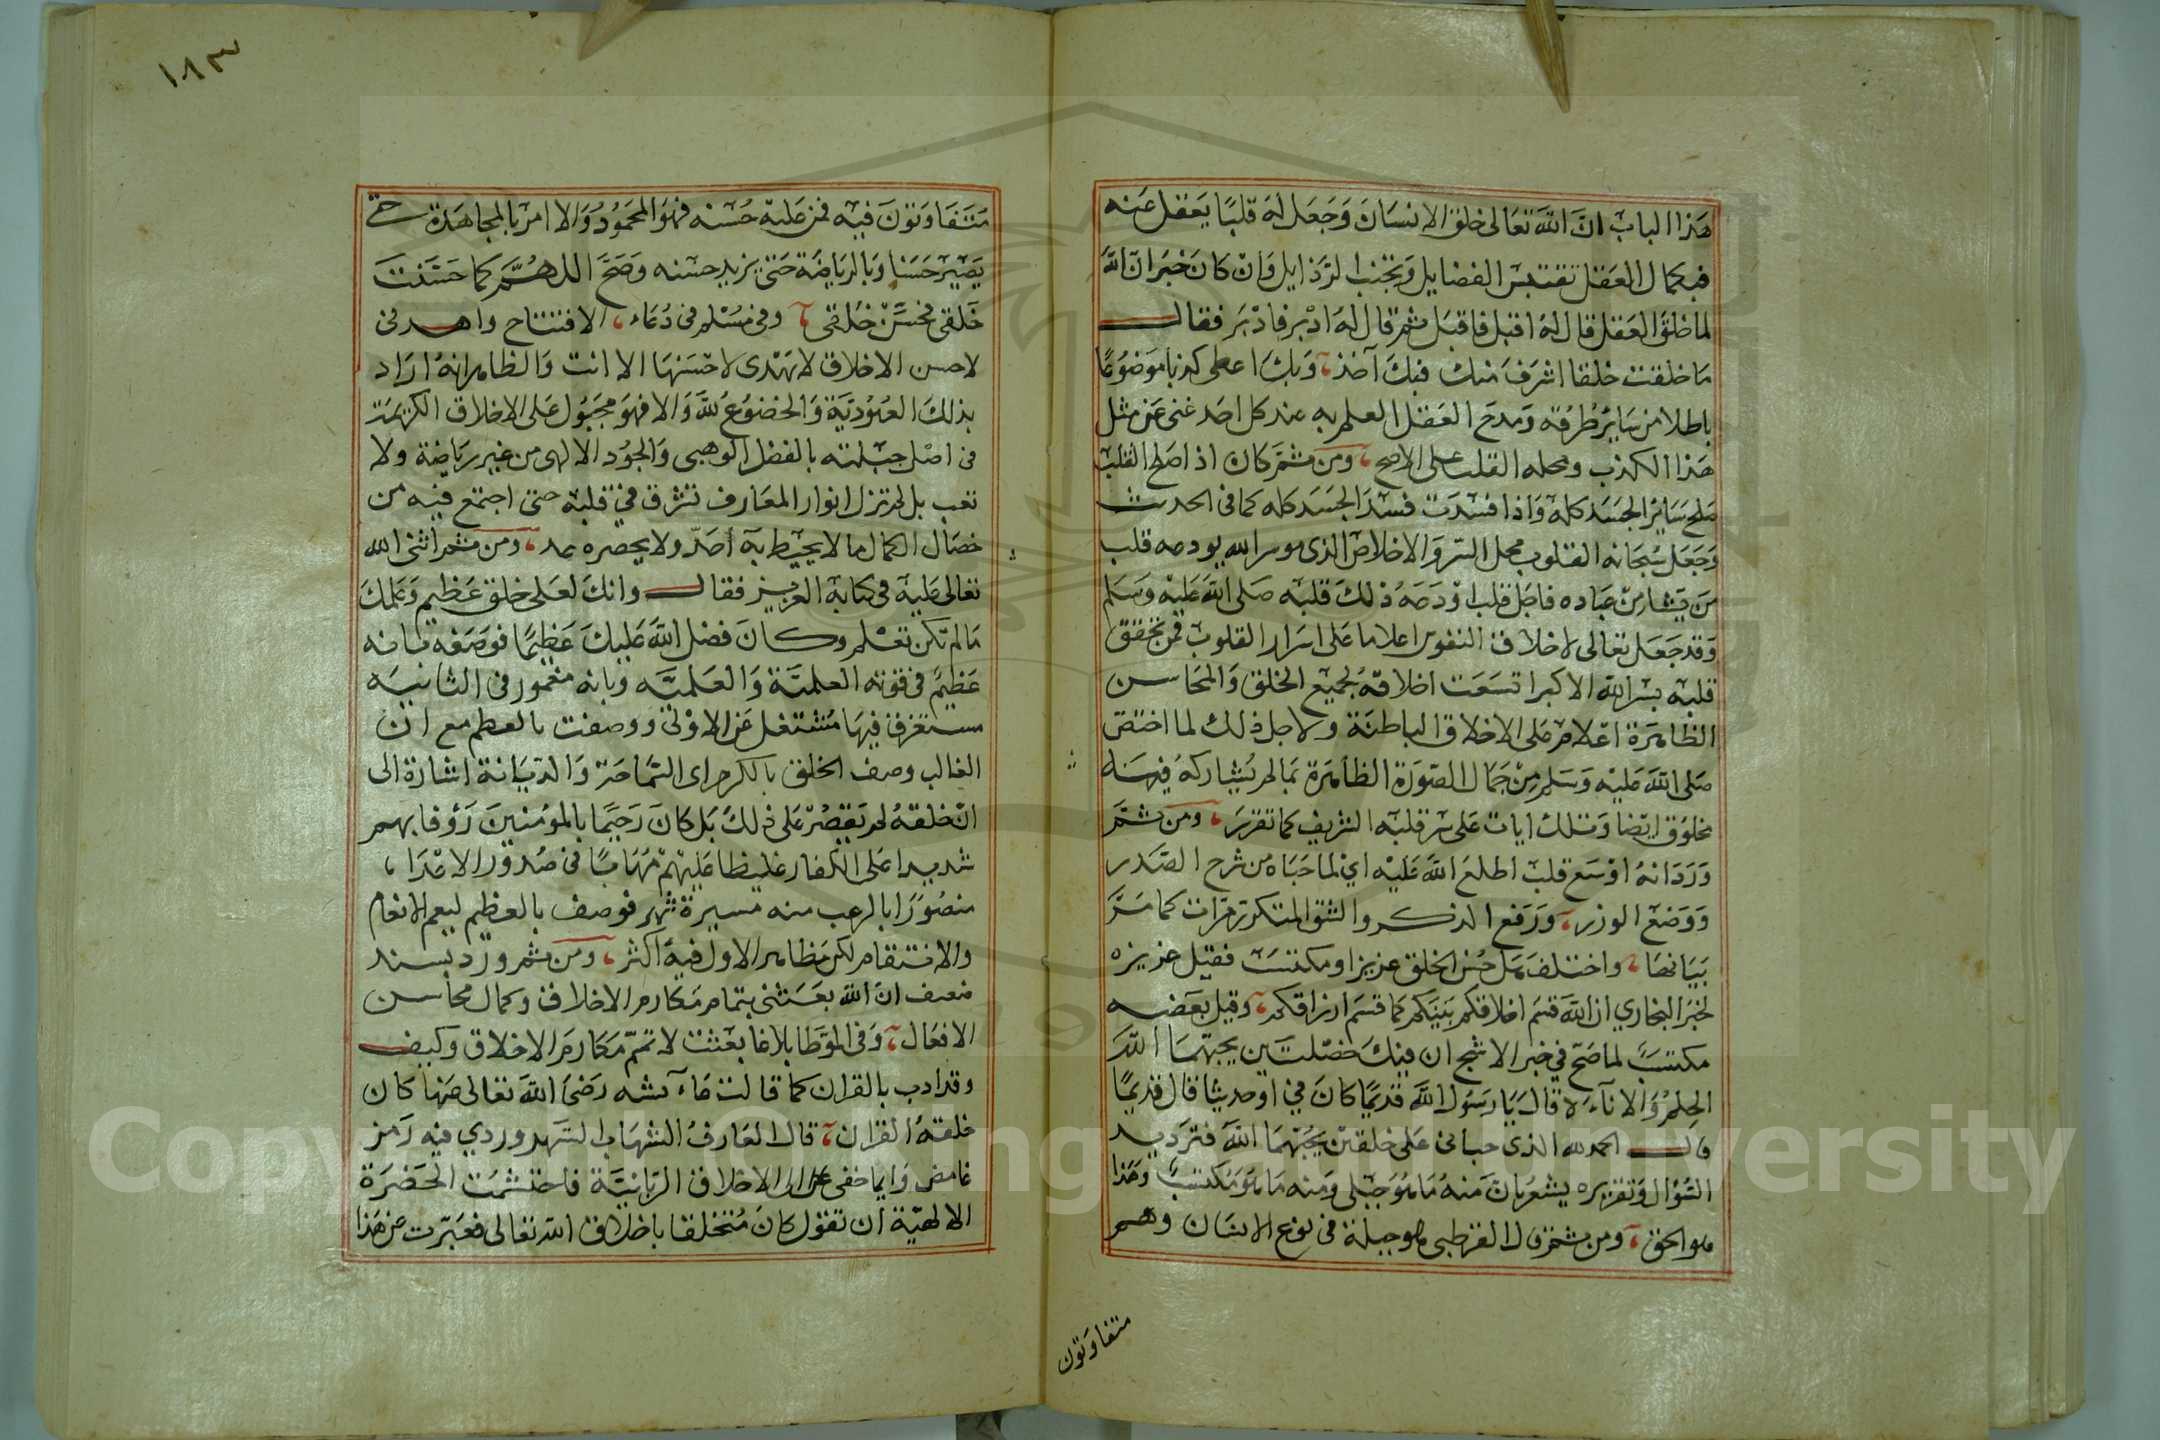 هذا الباب ان الله تعالى خلق الانسان وجعل له قلبا يعقل عنه
فبكمال العقل تقتبس الفضايل وتجنب الرذايل وان كان خبر ان الله
لما خلق العقل قال له اقبل فاقبل ثم قال له ادبر فادبر فقال
ما خلقت خلقا اشرف منك فبك آخذ وبك اعطى كذبا موضوعا
باطلا من ساير طرقه ومدح العقل العلم به عند كل احد غنى عن مثل
هذا الكذب ومحله القلب على الاصح ومن ثم كان اذا صلح القلب
صلح ساير الجسد كله واذا فسدت فسد الجسد كله كما في الحديث
وجعل سبحانه القلوب محل السر والاخلاص الذي هو سر الله يودعه قلب
من يشا من عباده فاجل قلب اودعه ذلك قلبه صلى الله عليه وسلم
وقد جعل تعالى لاخلاق النفوس اعلاما على اسرار القلوب فمن تحقق
قلبه بسر الله الاكبر اتسعت اخلاقه لجميع الخلق والمحاسن
الظاهرة اعلام على الاخلاق الباطنة ولاجل ذلك لما اختص
صلى الله عليه وسلم من جمال الصورة الظاهرة بما لم يشاركه فيه
مخلوق ايضا وتلك ايات على سر قلبه الشريف كما تقرر ومن ثم
ورد انه اوسع قلب اطلع الله عليه اي لما حباه من شرح الصدر
ووضع الوزر ورفع الذكر والشق المتكرر مرات كما مر
بيانها واختلف هل حسن الخلق غريزة او مكتسب فقيل غريزه
لخبر البخاري ان الله قسم اخلاقكم بينكم كما قسم ارزاقكم وقيل بعضه
مكتسب لما صح في خبر الاشج ان فيك خصلتين يحبهما الله
الحلم والاناءة قال يا رسول الله قديما كان في او حديثا قال قديما
قال الحمد لله الذي جبلني على خلقين يحبهما الله فترديد
السؤال وتقريره يشعر بان منه ما هو جبلى ومنه ما هو مكتسب وهذا
هو الحق ومن ثم قال القرطبي هو جبلة في نوع الانسان وهم
متفاوتون
١٨٣
متفاوتون فيه فمن غلبه حسنه فهو المحمود والا امر بالمجاهدة حتى
يصير حسنا وبالرياضة حتى يزيد حسنه وصح اللهم كما حسنت
خلقي فحسن خلقي وفي مسلم في دعاء الافتتاح واهدني
لاحسن الاخلاق لا يهدى لاحسنها الا انت والظاهر انه اراد
بذلك العبودية والخضوع لله والا فهو مجبول على الاخلاق الكريمة
في اصل جبلته بالفضل الوهبى والجود الالهى من غير رياضة ولا
تعب بل لم تزل انوار المعارف تشرق في قلبه حتى اجتمع فيه من
خصال الكمال ما لا يحيط به احد ولا يحصره عد ومن ثم اثنى الله
تعالى عليه في كتابه العزيز فقال وانك لعلى خلق عظيم وعلمك
ما لم تكن تعلم وكان فضل الله عليك عظيما فوصفه بانه
عظيم في قوته العلمية والعملية وبانه مغمور في الثانيه
مستغرق فيها مشتغل عن الاولى ووصفت بالعظم مع ان
الغالب وصف الخلق بالكرم اي السماحة والديانة اشارة الى
ان خلقه لم يقصر على ذلك بل كان رحيما بالمومنين رؤفا بهم
شديدا على الكفار غليظا عليهم مهابا في صدور الاعدا
منصورا بالرعب منه مسيرة شهر فوصف بالعظيم ليعم الانعام
والانتقام لكن مظاهر الاول فيه اكثر ومن ثم ورد بسند
ضعيف ان الله بعثني بتمام مكارم الاخلاق وكمال محاسن
الافعال وفي الموطا بلاغا بعثت لاتمم مكارم الاخلاق وكيف
وقد ادب بالقران كما قالت عآئشه رضى الله تعالى عنها كان
خلقه القران قال العارف الشهاب السهروردي فيه رمز
غامض وايما خفى الى الاخلاق الربانية فاحتشمت الحضرة
الالهية ان تقول كان متخلقا باخلاق الله تعالى فعبرت عن هذا
Copyright © King Saud University